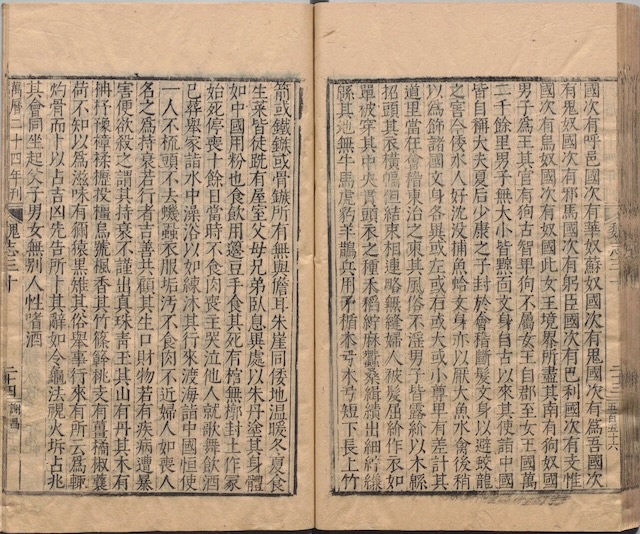 國次有呼邑國次有華奴蘇奴國次有鬼國次有爲吾國次
有鬼奴國次有邪馬國次有躬臣國次有巴利國次有支惟
國次有烏奴國次有奴國此女王境界所盡其南有狗奴國
男子爲王其官有狗古智卑狗不屬女王自郡至女王國萬
二千餘里男子無大小皆黥面文身自古以來其使詣中國
皆自稱大夫夏后少康之子封於會稽斷髮文身以避蛟龍
之害今倭水人好沈没捕魚蛤文身亦以厭大魚水禽後稍
以爲飾諸國文身各異或左或右或大或小尊卑有差計其
道里當在會稽東治之東其風俗不淫男子皆露紒以木緜
招頭其衣橫幅但結束相連略無縫婦人被髮屈紒作衣如
單被穿其中央貫頭衣之種禾稻紵麻蠶桑緝績出細紵縑
緜其地無牛馬虎豹羊鵲兵用矛楯木弓木弓短下長上竹
箭或鐵鏃或骨鏃所有無與儋耳朱崖同倭地溫暖冬夏食
生菜皆徒跣有屋室父母兄弟臥息異處以朱丹塗其身體
如中國用粉也食飲用籩豆手食其死有棺無槨封土作冢
始死停喪十餘日當時不食肉喪主哭泣他人就歌舞飲酒
已葬舉家詣水中澡浴以如練沐其行來渡海詣中國恒使
一人不梳頭不去蟣蝨衣服垢汚不食肉不近婦人如喪人
名之爲持衰若行者吉善共顧其生口財物若有疾病遭暴
害便欲殺之謂其持衰不謹出真珠青玉其山有丹其木有
柟杼櫲樟楺櫪投橿烏號楓香其竹篠簳桃支有薑橘椒蘘
荷不知以爲滋味有獮猿黑雉其俗舉事行來有所云爲輒
灼骨而卜以占吉凶先告所卜其辭如令龜法視火坼占兆
其會同坐起父子男女無別人性嗜酒
萬曆二十四年刊 魏志三十 二十四